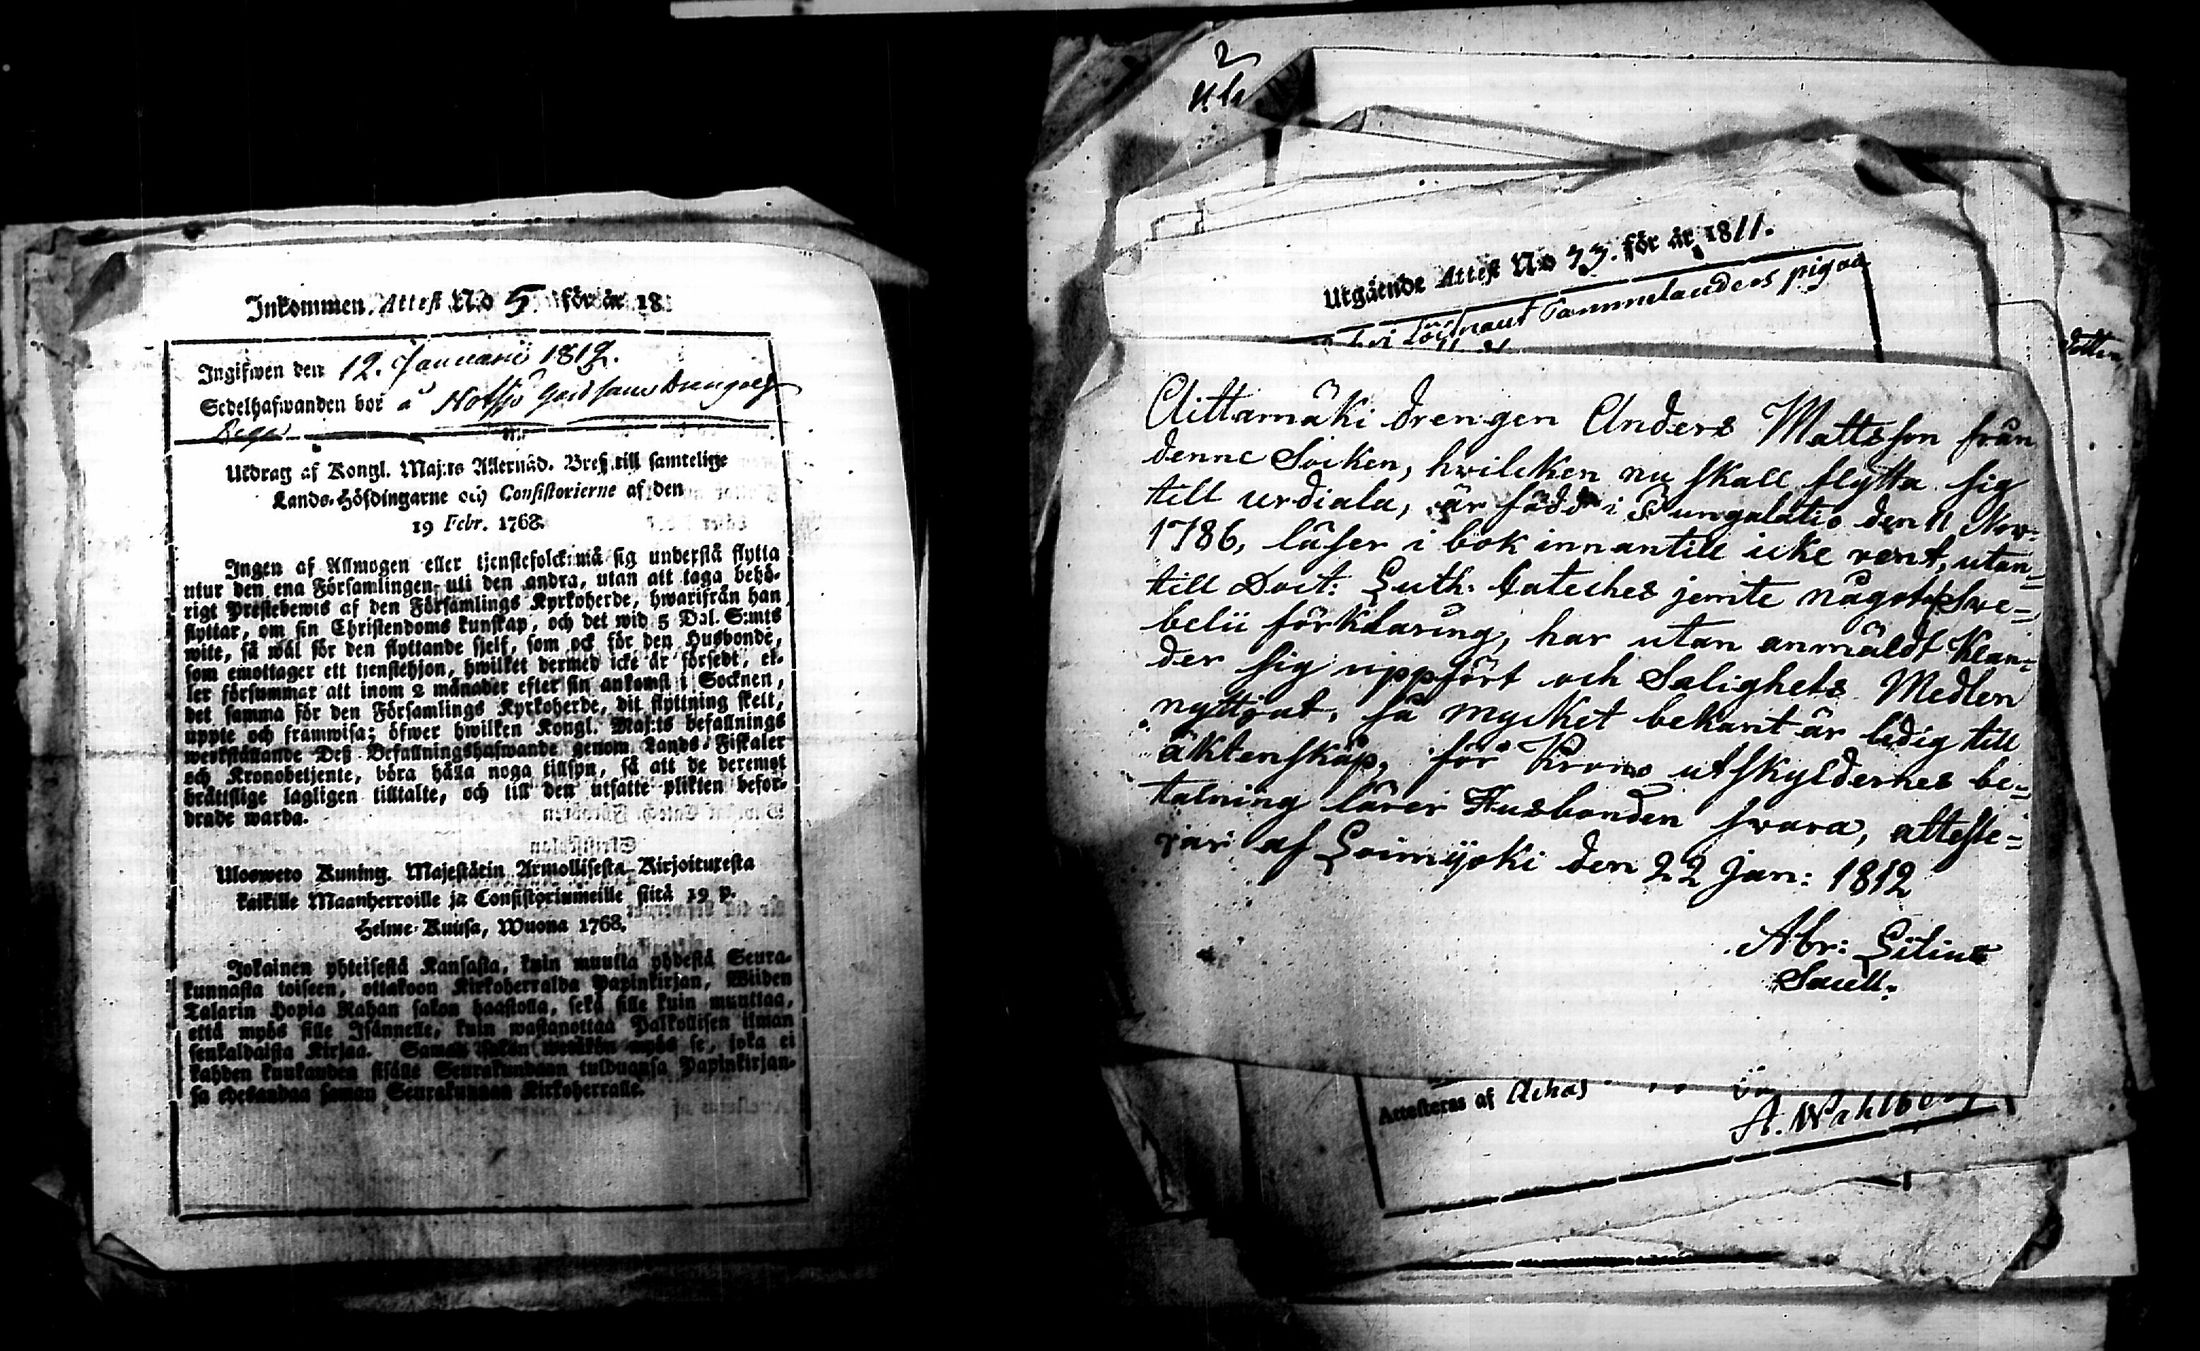 Inkommen Attest No 5. för år 18
Ingifwen den 12. Januarii 1812.
Sedelhafwanden bor å
Utdrag af Kongl. Maj:ts Allernåd. Bref till samtelige
Lands-Höfdingarne och Consistorierne af den
19 Febr. 1768.
Ingen af Allmogen eller tjenstefolck må sig understå flytta
utur den ena Församlingen uti den andra, utan att taga behö-
rigt Prestebewis af den Församlings Kyrkoherde, hwarifrån han
flyttar, om sin Christendoms kunskap, och det wid 5 Dal. S:mts
wite, så wäl för den flyttande sjelf, som ock för den Husbonde,
som emottager ett tjenstehjon, hwilket dermed icke är försedt, el-
ler försummar att inom 2 månader efter sin ankomst i Socknen,
det samma för den Församlings Kyrkoherde, dit flyttning skett,
uppte och framwisa; öfwer hwilken Kongl. Maj:ts befallnings
werkställande Deß Befallningshafwande genom Lands-Fiskaler
och Kronobetjente, böra hålla noga tillsyn, så att de deremot
brättslige lagligen tilltalte, och till den utsatte plikten befor-
drade warda.
Uloswete Kuning. Majestätin Armollisesta Kirjoituxesta
kaikille Maanherroille ja Consistoriumeille siitä 19 p.
Helme-Kuusa, Wuona 1768.
Jokainen yhteisestä Kansasta, kuin muutta yhdestä Seura-
kunnasta toiseen, ottakoon Kirkoherralda Papinkirjan, Wiiden
Talarin Hopia Rahan sakon haastolla, sekä sille kuin muuttaa,
että myös sille Isännelle, kuin wastanottaa Palkollisen ilman
senkaldaista Kirjaa. Saman sakon se, joka ei
kahden kuukauden sisälle Seurakundaan tulduansa Papinkirjan-
sa edesandaa saman Seurakunnan Kirkoherralle.
2
Utgående Attest No 33. för år 1811.
Tammelanders pigan
Aittamäki drengen Anders Mattsson från
denne Socken, hvilcken nu skall flytta sig
till urdiala, är född i den 11 Nov:
1786, läser i bok innantill icke rent, utan-
till Doct: Luth: Cateches jemte något Sve-
belii förklaring, har utan anmäldt klan-
der sig uppfört och Salighets Medlen
nyttjat, så mycket bekant är ledig till
äktenskap, för Krono utskyldernes be-
talning lärer Husbonden svara, atteste-
rar af Loimijoki den 22 Jan: 1812
Abr: Lilius
Sacell:
Attesteras af Achas
A. Wahlberg